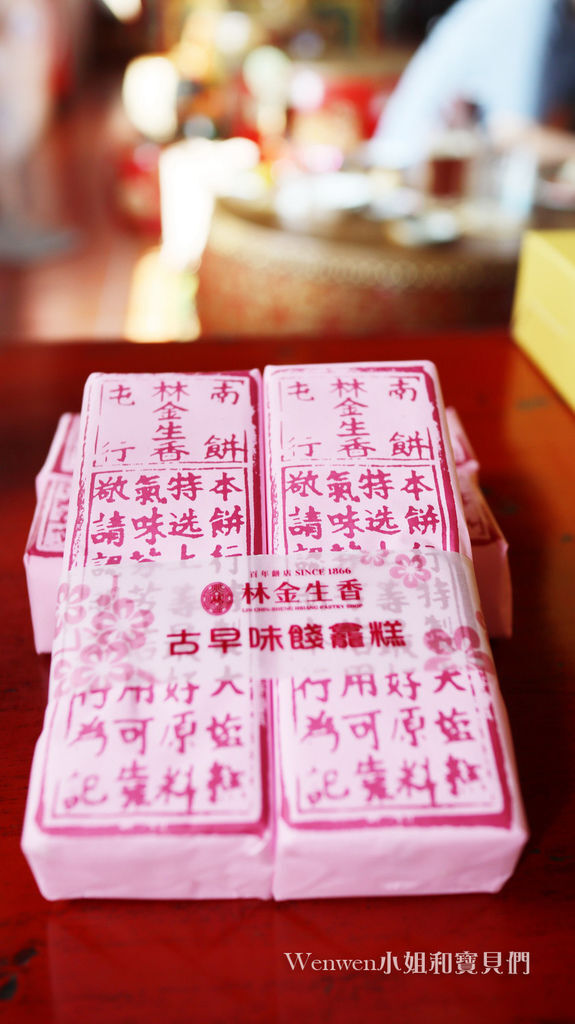 南屯
林金生香
餅行
本餅行
特选上
氣味芬
欲請認
好原料
用可
行為記
南屯
林金生香
餅行
本餅行特製
特选上
氣味
欲請認
好原料
用可
行為記
百年餅店 SINCE 1866
林金生香
LIN CHIN-SHENG HSIANG PASTRY SHOP
古早味餞龕糕
Wenwen小姐和寶貝們